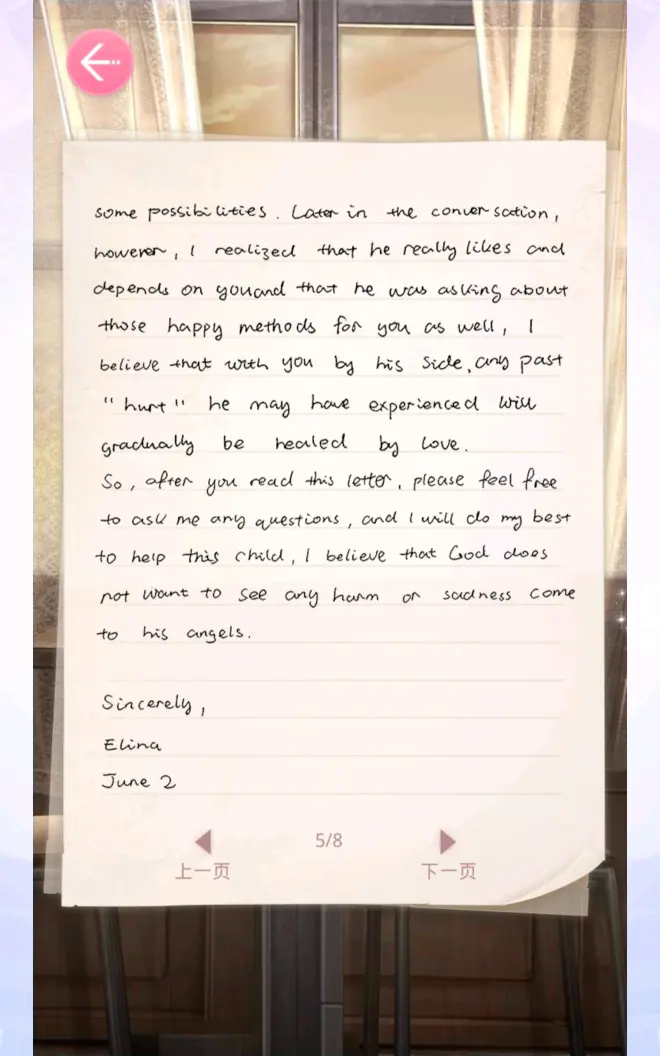 some possibilities. Later in the conversation,
however, I realized that he really likes and
depends on you and that he was asking about
those happy methods for you as well, I
believe that with you by his side, any past
"hurt" he may have experienced will
gradually be healed by love.
So, after you read this letter, please feel free
to ask me any questions, and I will do my best
to help this child, I believe that God does
not want to see any harm or sadness come
to his angels.
Sincerely,
Elina
June 2
5/8
上一页 下一页